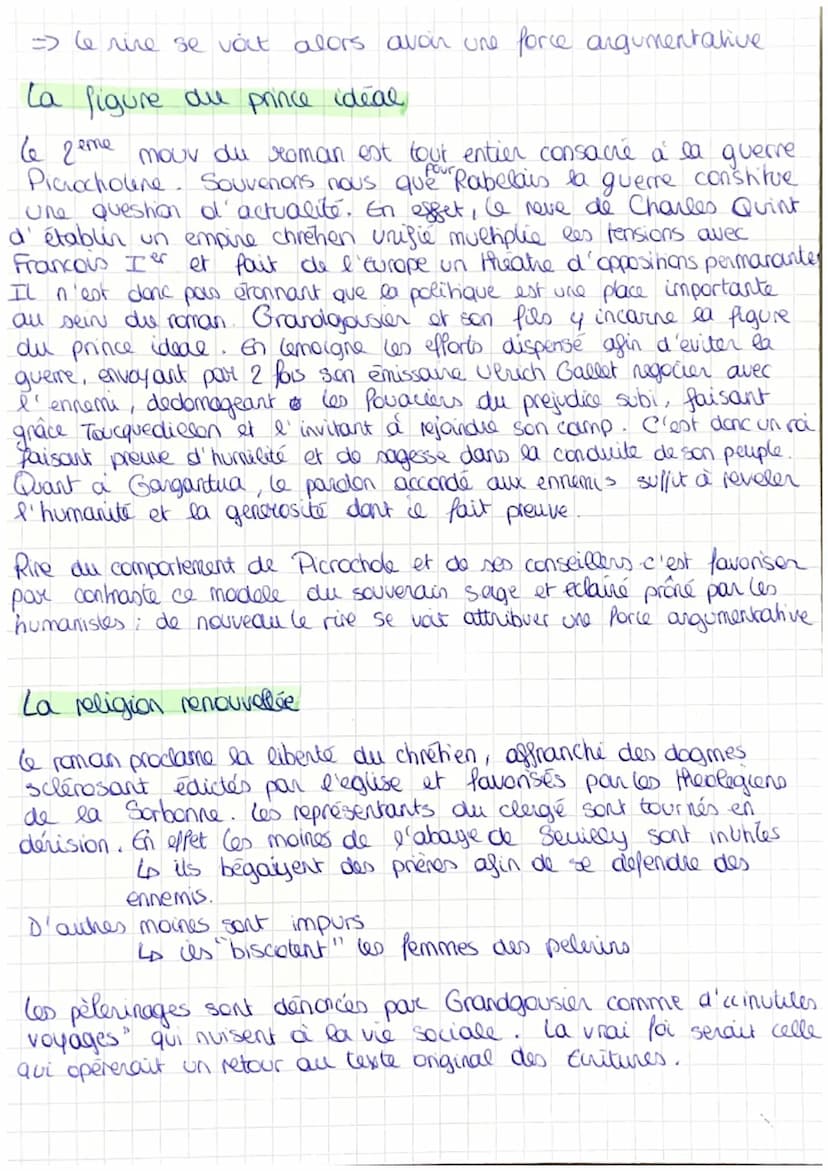 => Le rire se voit alors avoir une force argumentative
La figure du prince idéal
Le 2eme mouv du roman est tout entier consacré à la guerre
Picrocholine. Souvenons nous que pour Rabelais la guerre constitue
une question d'actualité. En effet, le reve de Charles Quint
d'établir un empire chrétien unifié multiplie les tensions avec
Francois Ier et fait de l'Europe un théatre d'oppositions permanantes
Il n'est donc pas étonnant que la politique est une place importante
au sein du roman. Grandgousier et son fils y incarne la figure
du prince ideal. En temoigne les efforts dispensé afin d'eviter la
guerre, envoyant par 2 fois son émissaire Ulrich Gallet negocier avec
l'ennemi, dedomageant les Fouaciers du prejudice subi, faisant
grâce Toucquedillon et l'invitant à rejoindre son camp. C'est donc un roi
faisant preuve d'humilité et de sagesse dans la conduite de son peuple.
Quant à Gargantua, le pardon accordé aux ennemis suffit à reveler
l'humanité et la generosité dont il fait preuve.
Rire du comportement de Picrochole et de ses conseillers c'est favoriser
par contraste ce modele du souverain sage et eclairé prôné par les
humanistes ; de nouveau le rire se voit attribuer une force argumentative
La religion renouvellée
Le roman proclame la liberté du chrétien, affranchi des dogmes
sclérosant édictés par l'eglise et favorisés par les theologiens
de la Sorbonne. Les représentants du clergé sont tournés en
dérision. En effet les moines de l'abaye de Seuilly sont inutiles
↳ ils bégaiyent des prières afin de se défendre des
ennemis.
D'autres moines sont impurs
↳ ils "biscotent" les femmes des pelerins
Les pèlerinages sont dénoncés par Grandgousier comme d'"inutiles
voyages" qui nuisent à la vie sociale. La vrai foi serait celle
qui opérerait un retour au texte original des Ecritures.